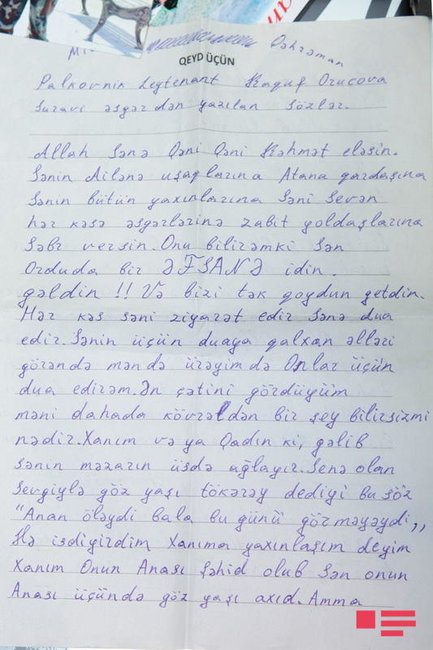 Qəhrəman
QEYD ÜÇÜN
Palkovnik Leytenant Raquf Orucova
Sıravi əsgərdən yazılan sözlər.
Allah Sənə Qəni Qəni Rəhmət eləsin.
Sənin Ailənə uşaqlarına Atana qardaşına
Sənin bütün yaxınlarına Səni Sevən
hər kəsə əsgərlərinə zabit yoldaşlarına
Səbr versin. Onu bilirəmki Sən
Orduda bir ƏFSANƏ idin.
gəldin !! Və bizi tək qoydun getdin.
Hər kəs səni ziyarət edir Sənə dua
edir. Sənin üçün duaya qalxan əlləri
görəndə məndə ürəyimdə Onlar üçün
dua edirəm. Ən çətini gördüyüm
məni dahada kövrəldən bir şey bilirsizmi
nədir. Xanım və ya Qadın ki, gəlib
sənin məzarın üsdə ağlayır. Senə olan
Sevgiylə göz yaşı tökərəy dediyi bu söz
"Anan öləydi bala bu günü görməyəydi,,
Elə isdiyirdim Xanıma yaxınlaşım deyim
Xanım Onun Anası Şəhid olub Sən onun
Anası üçündə göz yaşı axıd. Amma